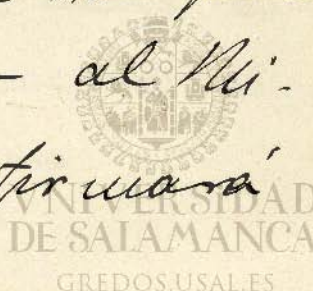 — al Mi-
firmará
VNIVERSIDAD
DE SALAMANCA
GREDOS.USAL.ES